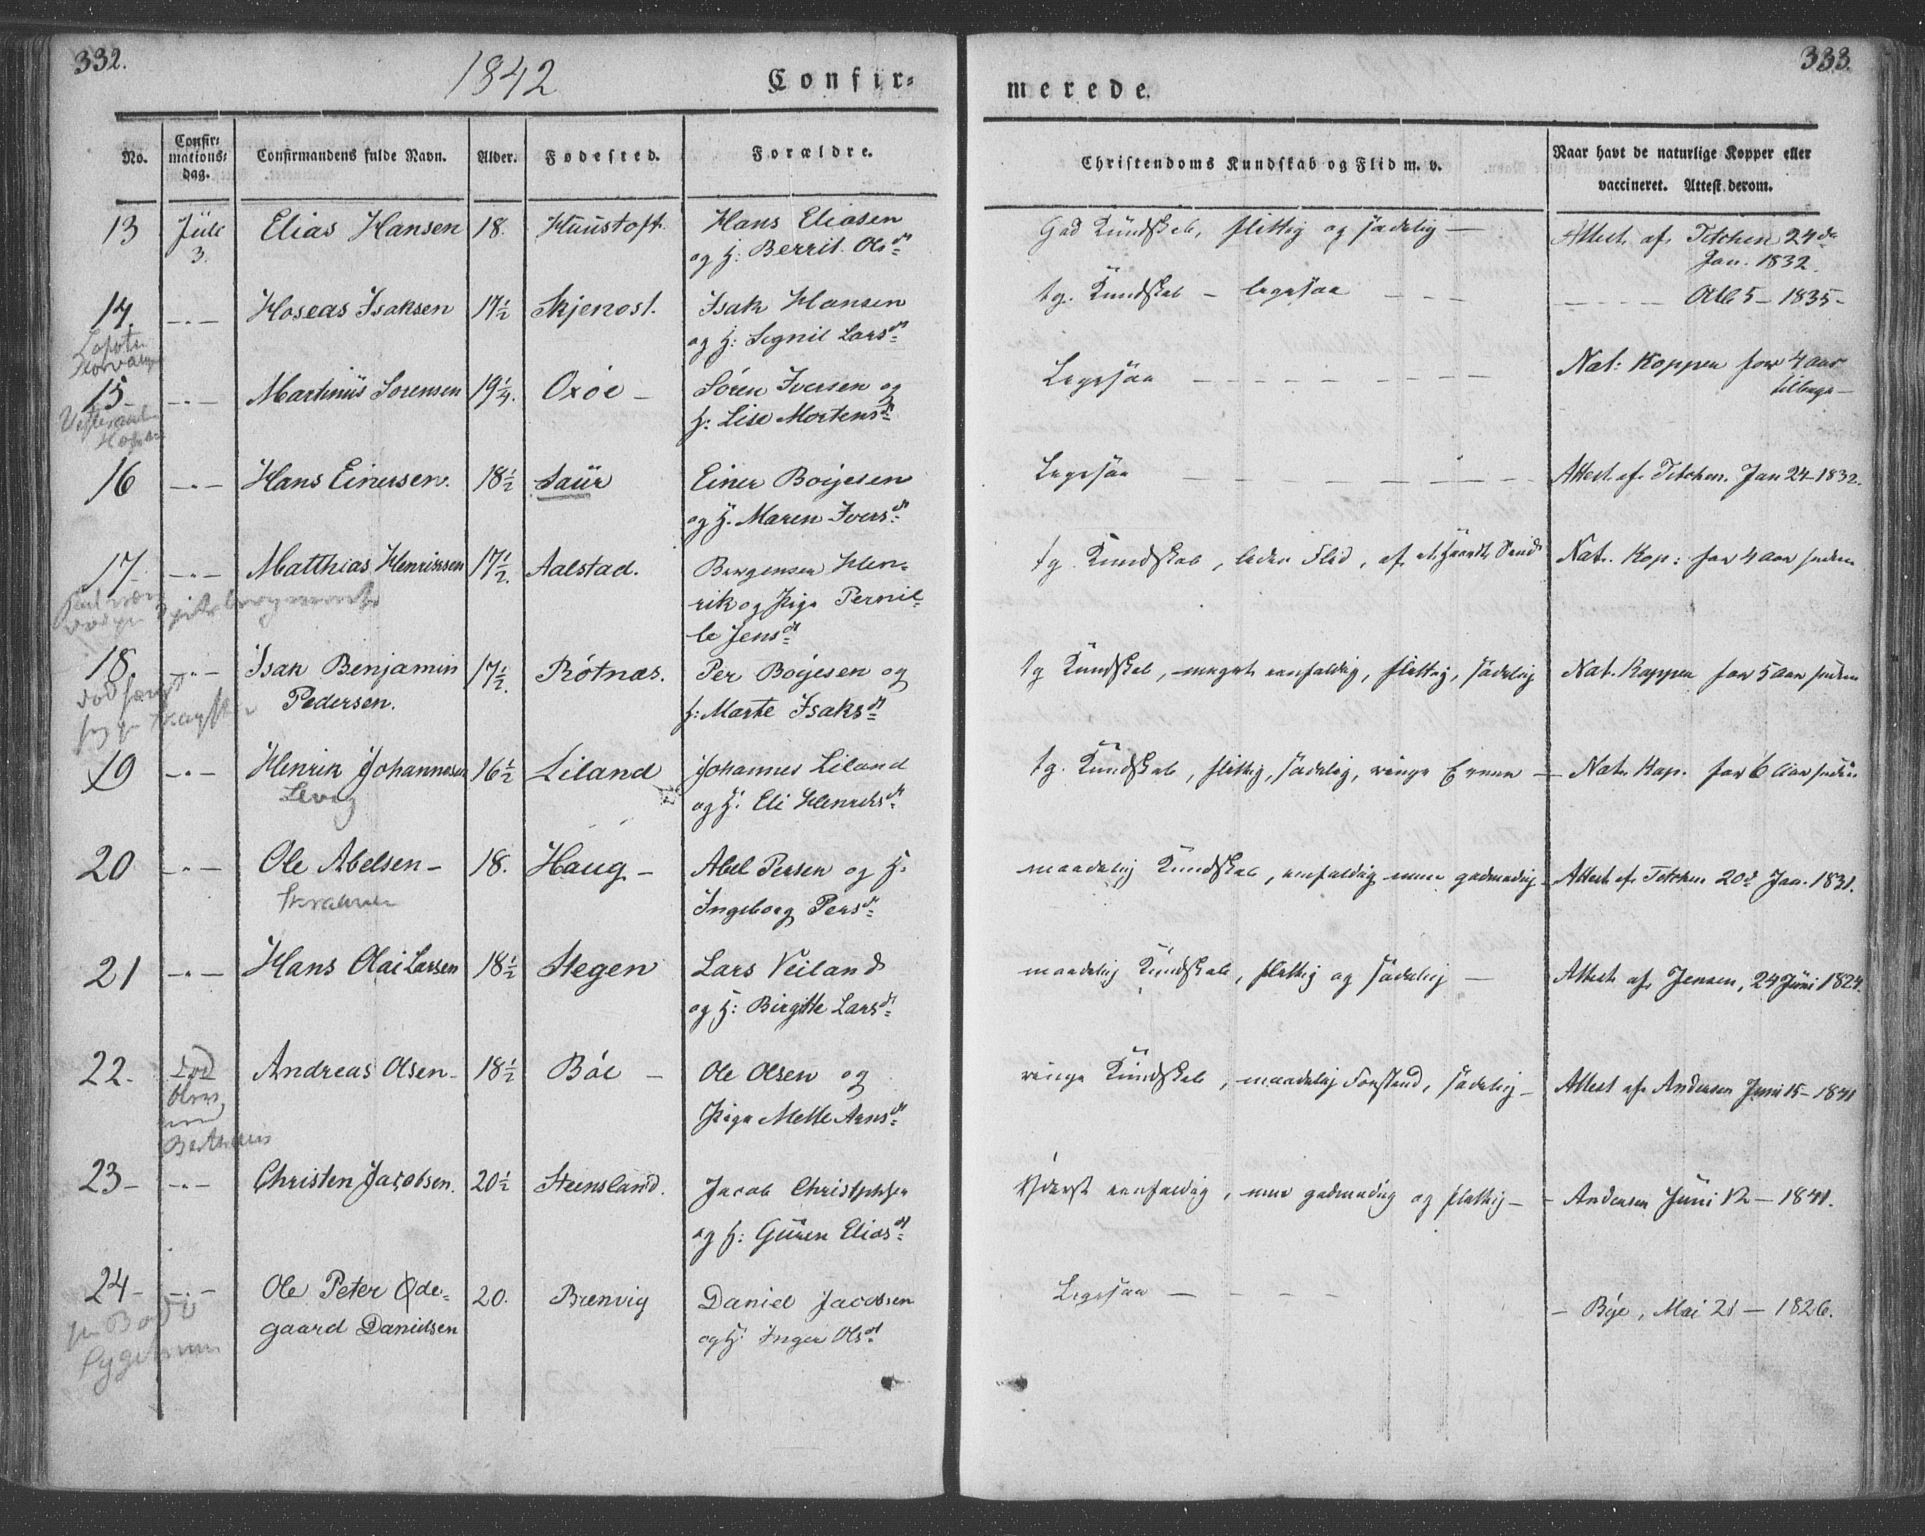 332.
1842
Confir-
No.
Confir-
mations-
dag.
Confirmandens fulde Navn.
Alder.
Fødested.
Forældre.
13 Juli Elias Hansen 18. Hans Eliasen
3. og H: Berrit Olsdt
14 Hoseas Isaksen 17½ Skjenost. Isak Hansen
og H: Larsdt
15 Martinus Sorensen 19¼. Oxöe Sören Iversen og
H: Lise Mortensdt
16 Hans Einersen. 18½ Saur Einer Boijesen
og H. Maren Iversdt
17 Matthias Henriksen 17½. Aalstad. Hen-
rik og Pige Pernil-
le Jensdt
18 Isak Benjamin 17½. Rötnæs. Per Boijesen og
Pedersen. H: Marte Isaksdt
19 Henrik Johannesen 16½ Liland Johannes Liland
og H: Eli Henriksdt
20 Ole Abelsen 18. Haug Abel Persen og H.
Ingeborg Persdt
21 Hans Olai Larsen 18½ Stegen Lars Veiland
og H: Birgitte Larsdt
22. Andreas Olsen 18½ Böe Ole Olsen og
Pige Mette Arnsdt
23 Christen Jacobsen. 20½ Steensland. Jacob
og H: Guren Eliasdt
24 Ole Peter Øde- 20. Brenvig Daniel Jacobsen
gaard Danielsen og H: Inger Olsdt
333.
merede.
Christendoms Kundskab og Flid m. v.
Naar havt de naturlige Kopper eller
vaccineret. Attest derom.
God Kundskab, flittig og sædelig Attest af Tetchen 24de
Jan. 1832.
tg. Kundskab – ligesaa 5 – 1835
Ligesaa Nat: Kopper for 4 Aar
tilbage
Ligesaa Attest af Tetchen. Jan 24 – 1832.
tg. Kundskab, Flid, af Nat. Kop: for 4 Aar siden
tg Kundskab, meget eenfoldig, flittig, sædelig Nat. Kopper for 5 Aar siden
tg. Kundskab, flittig, sædelig, ringe Evner Nat. Kop. for 6 Aar siden
maadelig Kundskab, eenfoldig men godmodig Attest af Tetchen 20d Jan. 1831.
maadelig Kundskab, flittig og sædelig Attest af Jensen, 24 Juni 1824.
ringe Kundskab, maadelig Forstand, sædelig Attest af Andersen Juni 15 – 1841
Yderst eenfoldig, men godmodig og flittig Andersen Juni 12 – 1841.
Ligesaa Böje, Mai 21 – 1826.